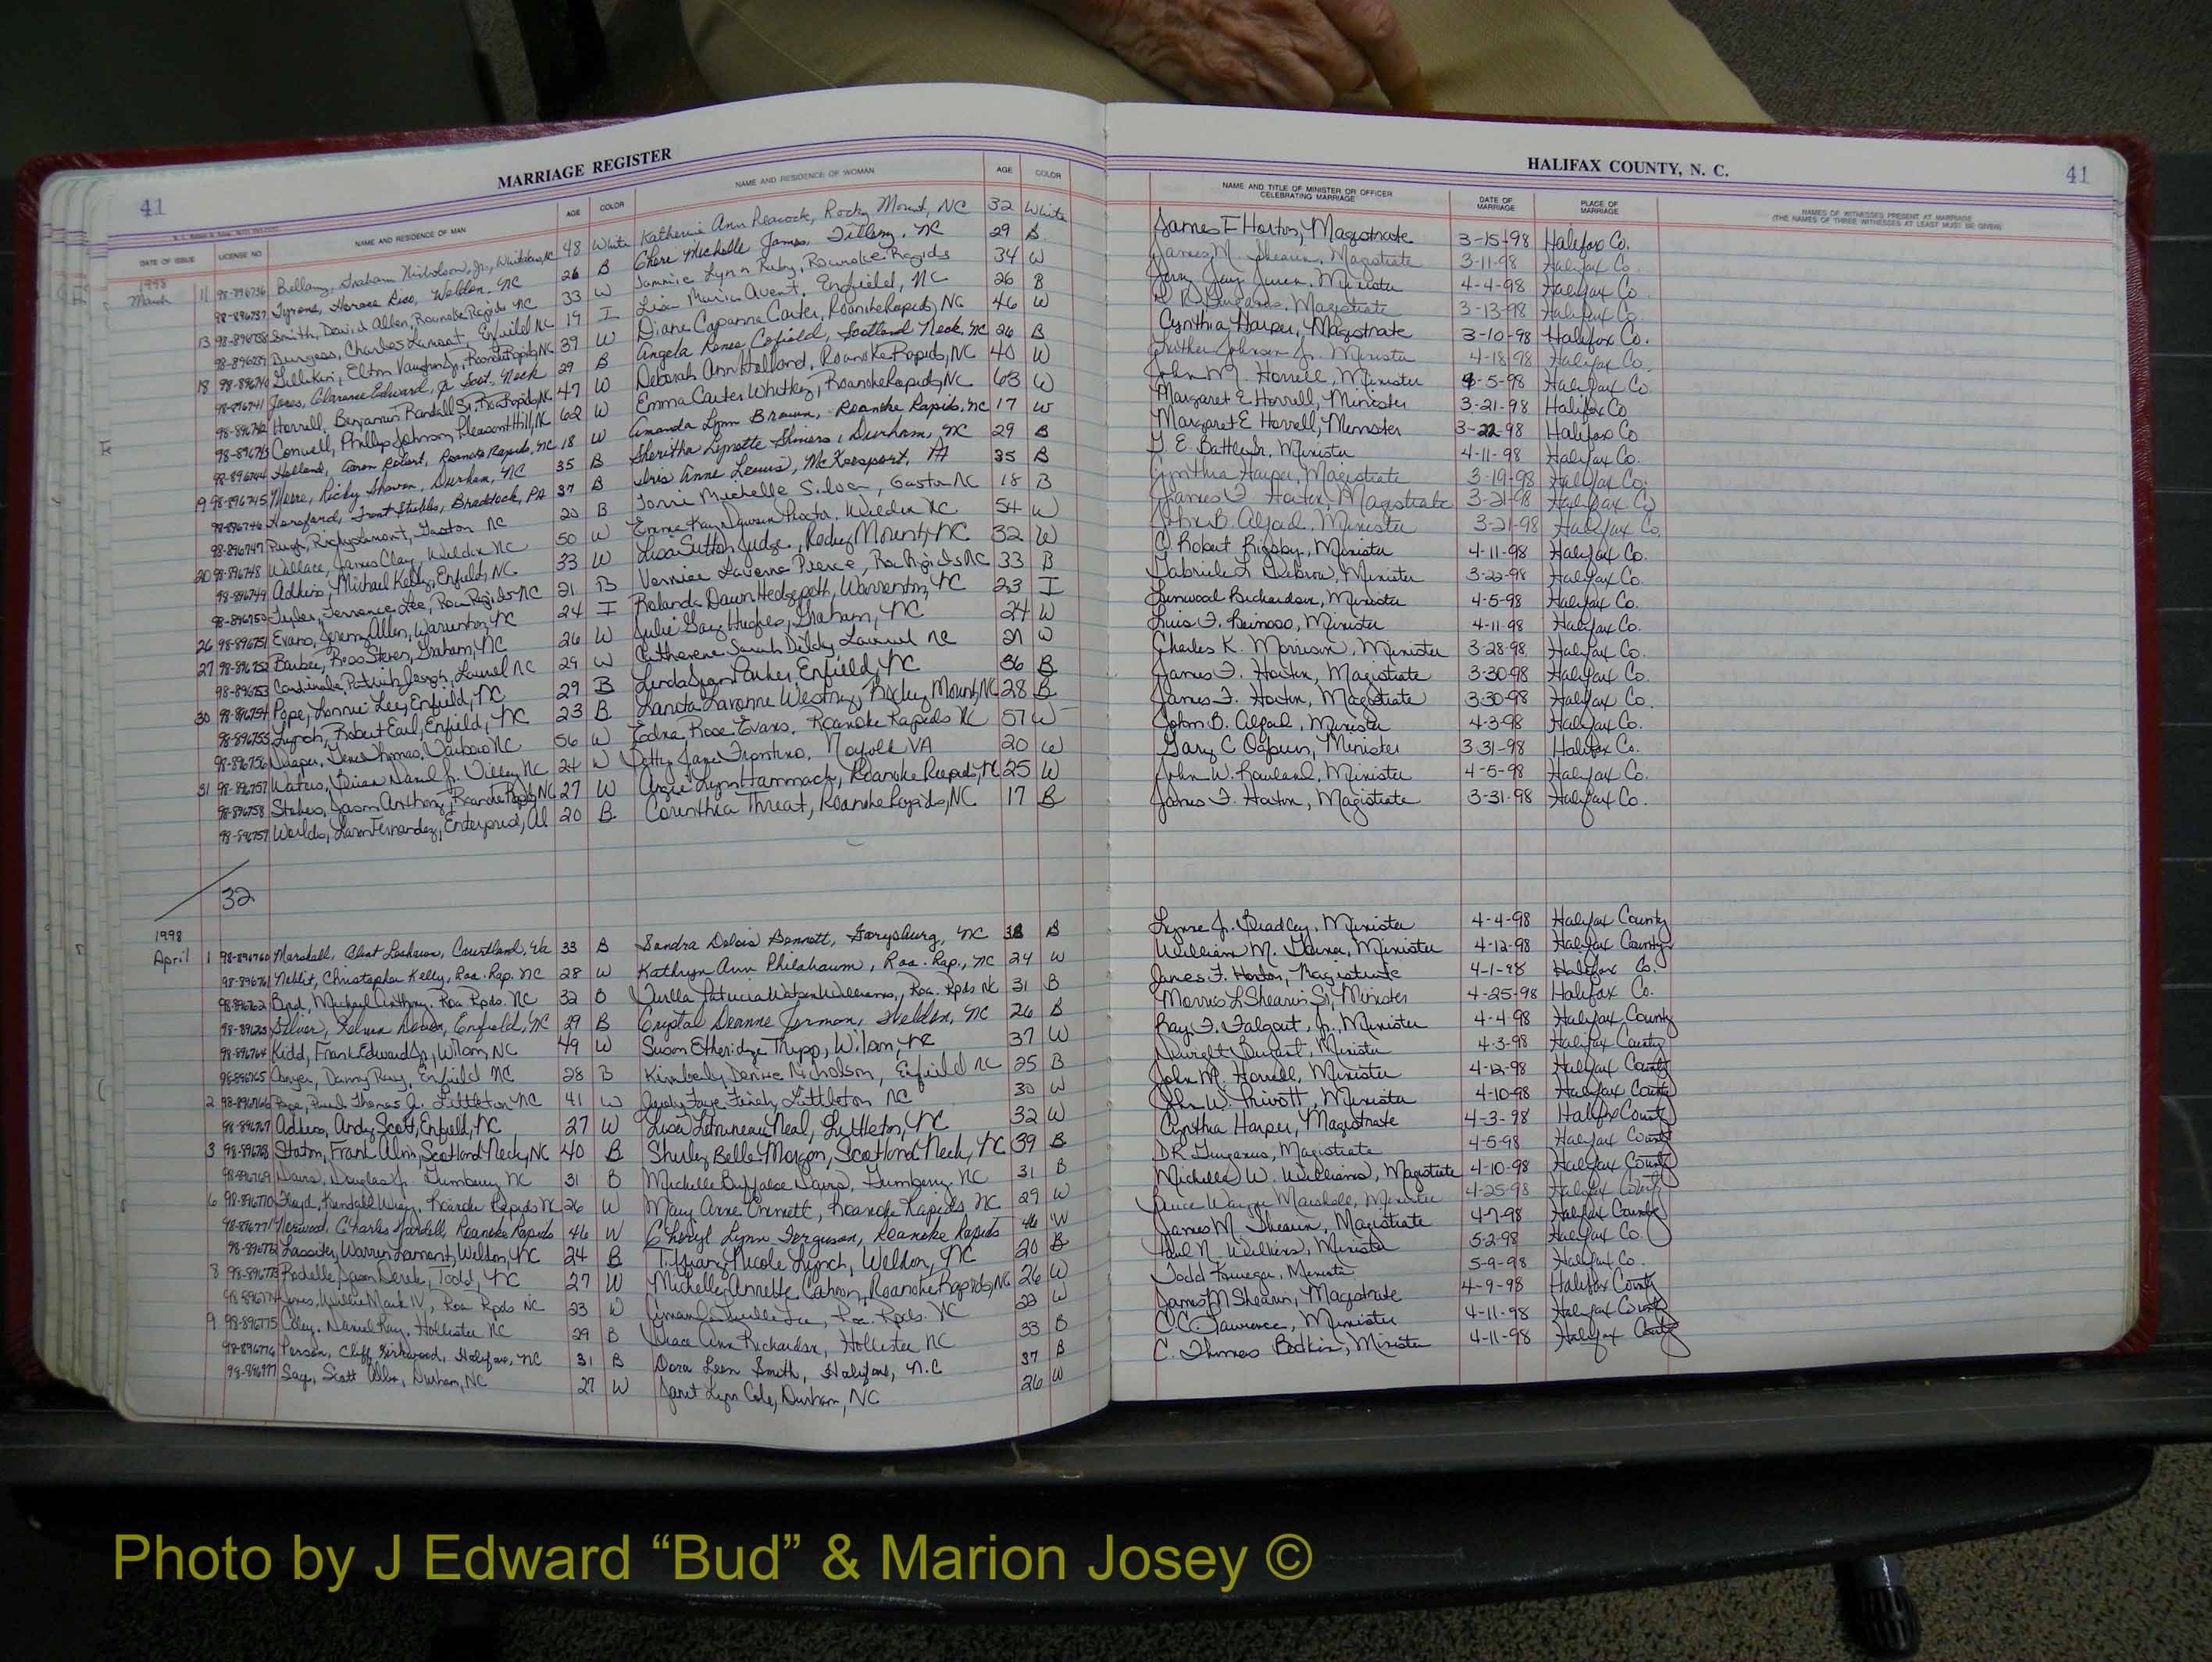 MARRIAGE REGISTER
41
DATE OF ISSUE LICENSE NO NAME AND RESIDENCE OF MAN AGE COLOR NAME AND RESIDENCE OF WOMAN AGE COLOR
1998
March 11 98-896736 Bellamy, Graham Nicholson, Jr., 48 White Katherine Ann Peacock, Rocky Mount, NC 32 White
98-896737 Tyrone, Horace Weldon, NC 26 B Cheri Michelle James, Tillery, NC 29 B
13 98-896738 Smith, David Allen, Roanoke Rapids NC 33 W Tammie Lynn Ruby, Roanoke Rapids 34 W
98-896739 Burgess, Charles Lamont, Enfield NC 19 I Lisa Marie Avent, Enfield, NC 26 B
18 98-896740 Gillikin, Elton Vaughn Jr, Roanoke Rapids, NC 39 W Diane Capanna Carter, Roanoke Rapids, NC 46 W
98-896741 Jones, Clarence Edward, Jr Scot. Neck 29 B Angela Renee Cofield, Scotland Neck, NC 26 B
98-896742 Horrell, Benjamin Randall Sr, Roa Rapids, NC 47 W Deborah Ann Holland, Roanoke Rapids, NC 40 W
98-896743 Conwell, Phillip Johnson, Pleasant Hill, NC 62 W Emma Carter Whitley, Roanoke Rapids, NC 63 W
98-896744 Holland, Aaron Robert, Roanoke Rapids, NC 18 W Amanda Lynn Brown, Roanoke Rapids, NC 17 W
19 98-896745 Moore, Ricky Durham, NC 35 B Sheritha Lynette Durham, NC 29 B
98-896746 Hansford, Trent Stubbs, Braddock, PA 37 B Iris Anne Lewis, McKeesport, PA 35 B
98-896747 Pugh, Ricky Lamont, Gaston NC 20 B Torri Michelle Silver, Gaston NC 18 B
20 98-896748 Wallace, James Clay, Weldon NC 50 W Ennie Kay Proctor, Weldon NC 54 W
98-896749 Adkins, Michael Kelly, Enfield, NC 33 W Lisa Sutton Judge, Rocky Mount, NC 32 W
98-896750 Tyler, Terrence Lee, Roa Rapids NC 21 B Vernice Laverne Pierce, Roa Rapids NC 33 B
26 98-896751 Evans, Jeremy Allen, Warrenton, NC 24 I Rolanda Dawn Hedgepeth, Warrenton, NC 23 I
27 98-896752 Barber, Ross Steven, Graham, NC 26 W Julie Gay Hughes, Graham, NC 24 W
98-896753 Cardinale, Patrick Joseph, Laurel NC 29 W Catherene Sarah Dildy Laurel NC 21 W
30 98-896754 Pope, Lonnie Lee, Enfield, NC 29 B Linda Parker, Enfield, NC 36 B
98-896755 Lynch, Robert Earl, Enfield, NC 23 B Lanita Lavonne Westry, Rocky Mount, NC 28 B
98-896756 Draper, Gene Thomas, Tarboro NC 56 W Edna Rose Evans, Roanoke Rapids NC 57 W
31 98-896757 Waters, Brian Jr. Tillery NC 24 W Betty Jane Frontino, Norfolk VA 20 W
98-896758 Stokes, Jason Anthony, Roanoke Rapids NC 27 W Angie Lynn Hammack, Roanoke Rapids, NC 25 W
98-896759 Fernandez, Enterprise, Al 20 B Corinthia Threat, Roanoke Rapids, NC. 17 B
32
1998
April 1 98-896760 Marshall, Courtland, Va 33 B Sandra Delois Bennett, Garysburg, NC B
98-896761 Neblit, Christopher Kelly, Roa. Rap. NC 28 W Kathryn Ann Philabaum, Roa. Rap., NC 24 W
98-896762 Michael Anthony. Roa Rpds. NC 32 B Patricia Watson Williams, Roa. Rpds NC 31 B
98-896763 Silver, Kelvin Enfield, NC 29 B Crystal Deanne Jarman, Weldon, NC 26 B
98-896764 Kidd, Frank Edward Jr, Wilson, NC 49 W Susan Etheridge Tripp, Wilson, NC 37 W
98-896765 Danny Ray, Enfield NC 28 B Kimberly Denise Nicholson, Enfield NC 25 B
2 98-896766 Pope, Paul Thomas Jr. Littleton NC 41 W Faye Finch, Littleton NC 30 W
98-896767 Adkins, Andy Scott, Enfield, NC 27 W Lisa Neal, Littleton, NC 32 W
3 98-896768 Staton, Frank Alvin, Scotland Neck, NC 40 B Shirley Belle Morgan, Scotland Neck, NC 39 B
98-896769 Davis, Douglas Jr Gumberry NC 31 B Michelle Buffaloe Davis, Gumberry NC 31 B
6 98-896770 Floyd, Kendall Wray, Roanoke Rapids NC 26 W Mary Anne Emmett, Roanoke Rapids, NC 29 W
98-896771 Norwood, Charles Roanoke Rapids 46 W Cheryl Lynn Ferguson, Roanoke Rapids 46 W
98-896772 Lassiter, Warren Lamont, Weldon, NC 24 B Tiffany Nicole Lynch, Weldon, NC 20 B
8 98-896773 Rochelle, Jason Derek, Todd, NC 27 W Michelle Annette Cahoon, Roanoke Rapids, NC 26 W
98-896774 Jones, Willie Mark IV, Roa Rpds NC 23 W Lee, Roa. Rpds. NC 22 W
9 98-896775 Daniel Ray. Hollister NC 29 B Grace Ann Richardson, Hollister NC 33 B
98-896776 Person, Cliff Kirkwood, Halifax, NC 31 B Dora Leon Smith, Halifax, N.C 37 B
98-896777 Sage, Scott Durham, NC 27 W Janet Lynn Cole, Durham, NC 26 W
HALIFAX COUNTY, N. C.
41
NAME AND TITLE OF MINISTER OR OFFICER CELEBRATING MARRIAGE DATE OF MARRIAGE PLACE OF MARRIAGE NAMES OF WITNESSES PRESENT AT MARRIAGE
(THE NAMES OF THREE WITNESSES AT LEAST MUST BE GIVEN)
James F Horton, Magistrate 3-15-98 Halifax Co.
James M. Shearin, Magistrate 3-11-98 Halifax Co
Jerry Jay Minister 4-4-98 Halifax Co
D R Gurganus, Magistrate 3-13-98 Halifax Co.
Cynthia Harper, Magistrate 3-10-98 Halifax Co.
Luther Johnson Jr. Minister 4-18-98 Halifax Co.
John M. Horrell, Minister 4-5-98 Halifax Co.
Margaret E Horrell, Minister 3-21-98 Halifax Co
Margaret E Horrell, Minister 3-22-98 Halifax Co
E. Battle Sr, Minister 4-11-98 Halifax Co.
Cynthia Harper, Magistrate 3-19-98 Halifax Co.
James F Horton, Magistrate 3-21-98 Halifax Co
John B. Alford, Minister 3-21-98 Halifax Co,
C Robert Rigsby, Minister 4-11-98 Halifax Co.
Gabriel L Minister 3-22-98 Halifax Co.
Linwood Richardson, Minister 4-5-98 Halifax Co.
Luis F. Reinoso, Minister 4-11-98 Halifax Co.
Charles K. Morrison, Minister 3-28-98 Halifax Co.
James F. Horton, Magistrate 3-30-98 Halifax Co.
James F. Horton, Magistrate 3-30-98 Halifax Co.
John B. Alford, Minister 4-3-98 Halifax Co.
Gary C Ogburn, Minister 3-31-98 Halifax Co.
John W. Rowland, Minister 4-5-98 Halifax Co.
James F. Horton, Magistrate 3-31-98 Halifax Co.
Lynne J. Bradley, Minister 4-4-98 Halifax County
William M. Minister 4-12-98 Halifax County
James F. Horton, Magistrate 4-1-98 Halifax Co.
Morris L Shearin Sr, Minister 4-25-98 Halifax Co.
Ray F. Falgout, Jr., Minister 4-4-98 Halifax County
Dwight Minister 4-3-98 Halifax County
John M. Horrell, Minister 4-12-98 Halifax County
John W. Trivott, Minister 4-10-98 Halifax County
Cynthia Harper, Magistrate 4-3-98 Halifax County
DR Gurganus, Magistrate 4-5-98 Halifax County
Michelle W. Williams, Magistrate 4-10-98 Halifax County
Bruce Wayne Marshall, Minister 4-25-98 Halifax County
James M. Shearin, Magistrate 4-7-98 Halifax County
Paul N. Wilkins, Minister 5-2-98 Halifax Co.
Todd Krueger, Minister 5-9-98 Halifax Co.
James M Shearin, Magistrate 4-9-98 Halifax County
C C Lawrence, Minister 4-11-98 Halifax County
C. Thomas Bodkin, Minister 4-11-98 Halifax County
Photo by J Edward “Bud” & Marion Josey ©